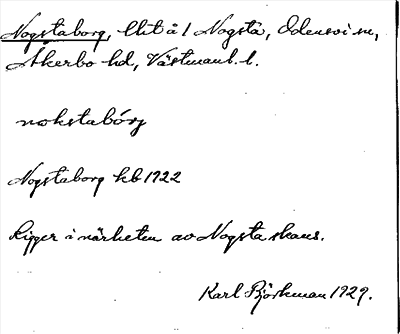 Nogstaborg, lht å 1 Nogsta, Odensvi sn,
Åkerbo hd, Västmanl. l.
nokstabórj
Nogstaborg kb 1922
Ligger i närheten av Nogsta skans.
Karl Björkman 1929.